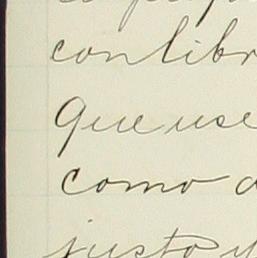 con libr
que use
como
justo y